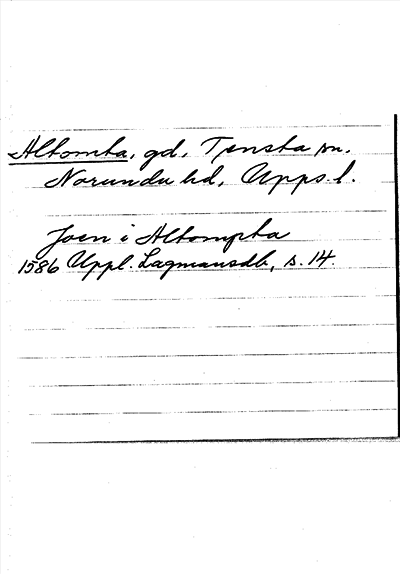 Altomta, gd, Tensta sn.
Norunda hd, Upps. l.
Joen i Altompta
1586 Uppl. Lagmansdb, s. 14.